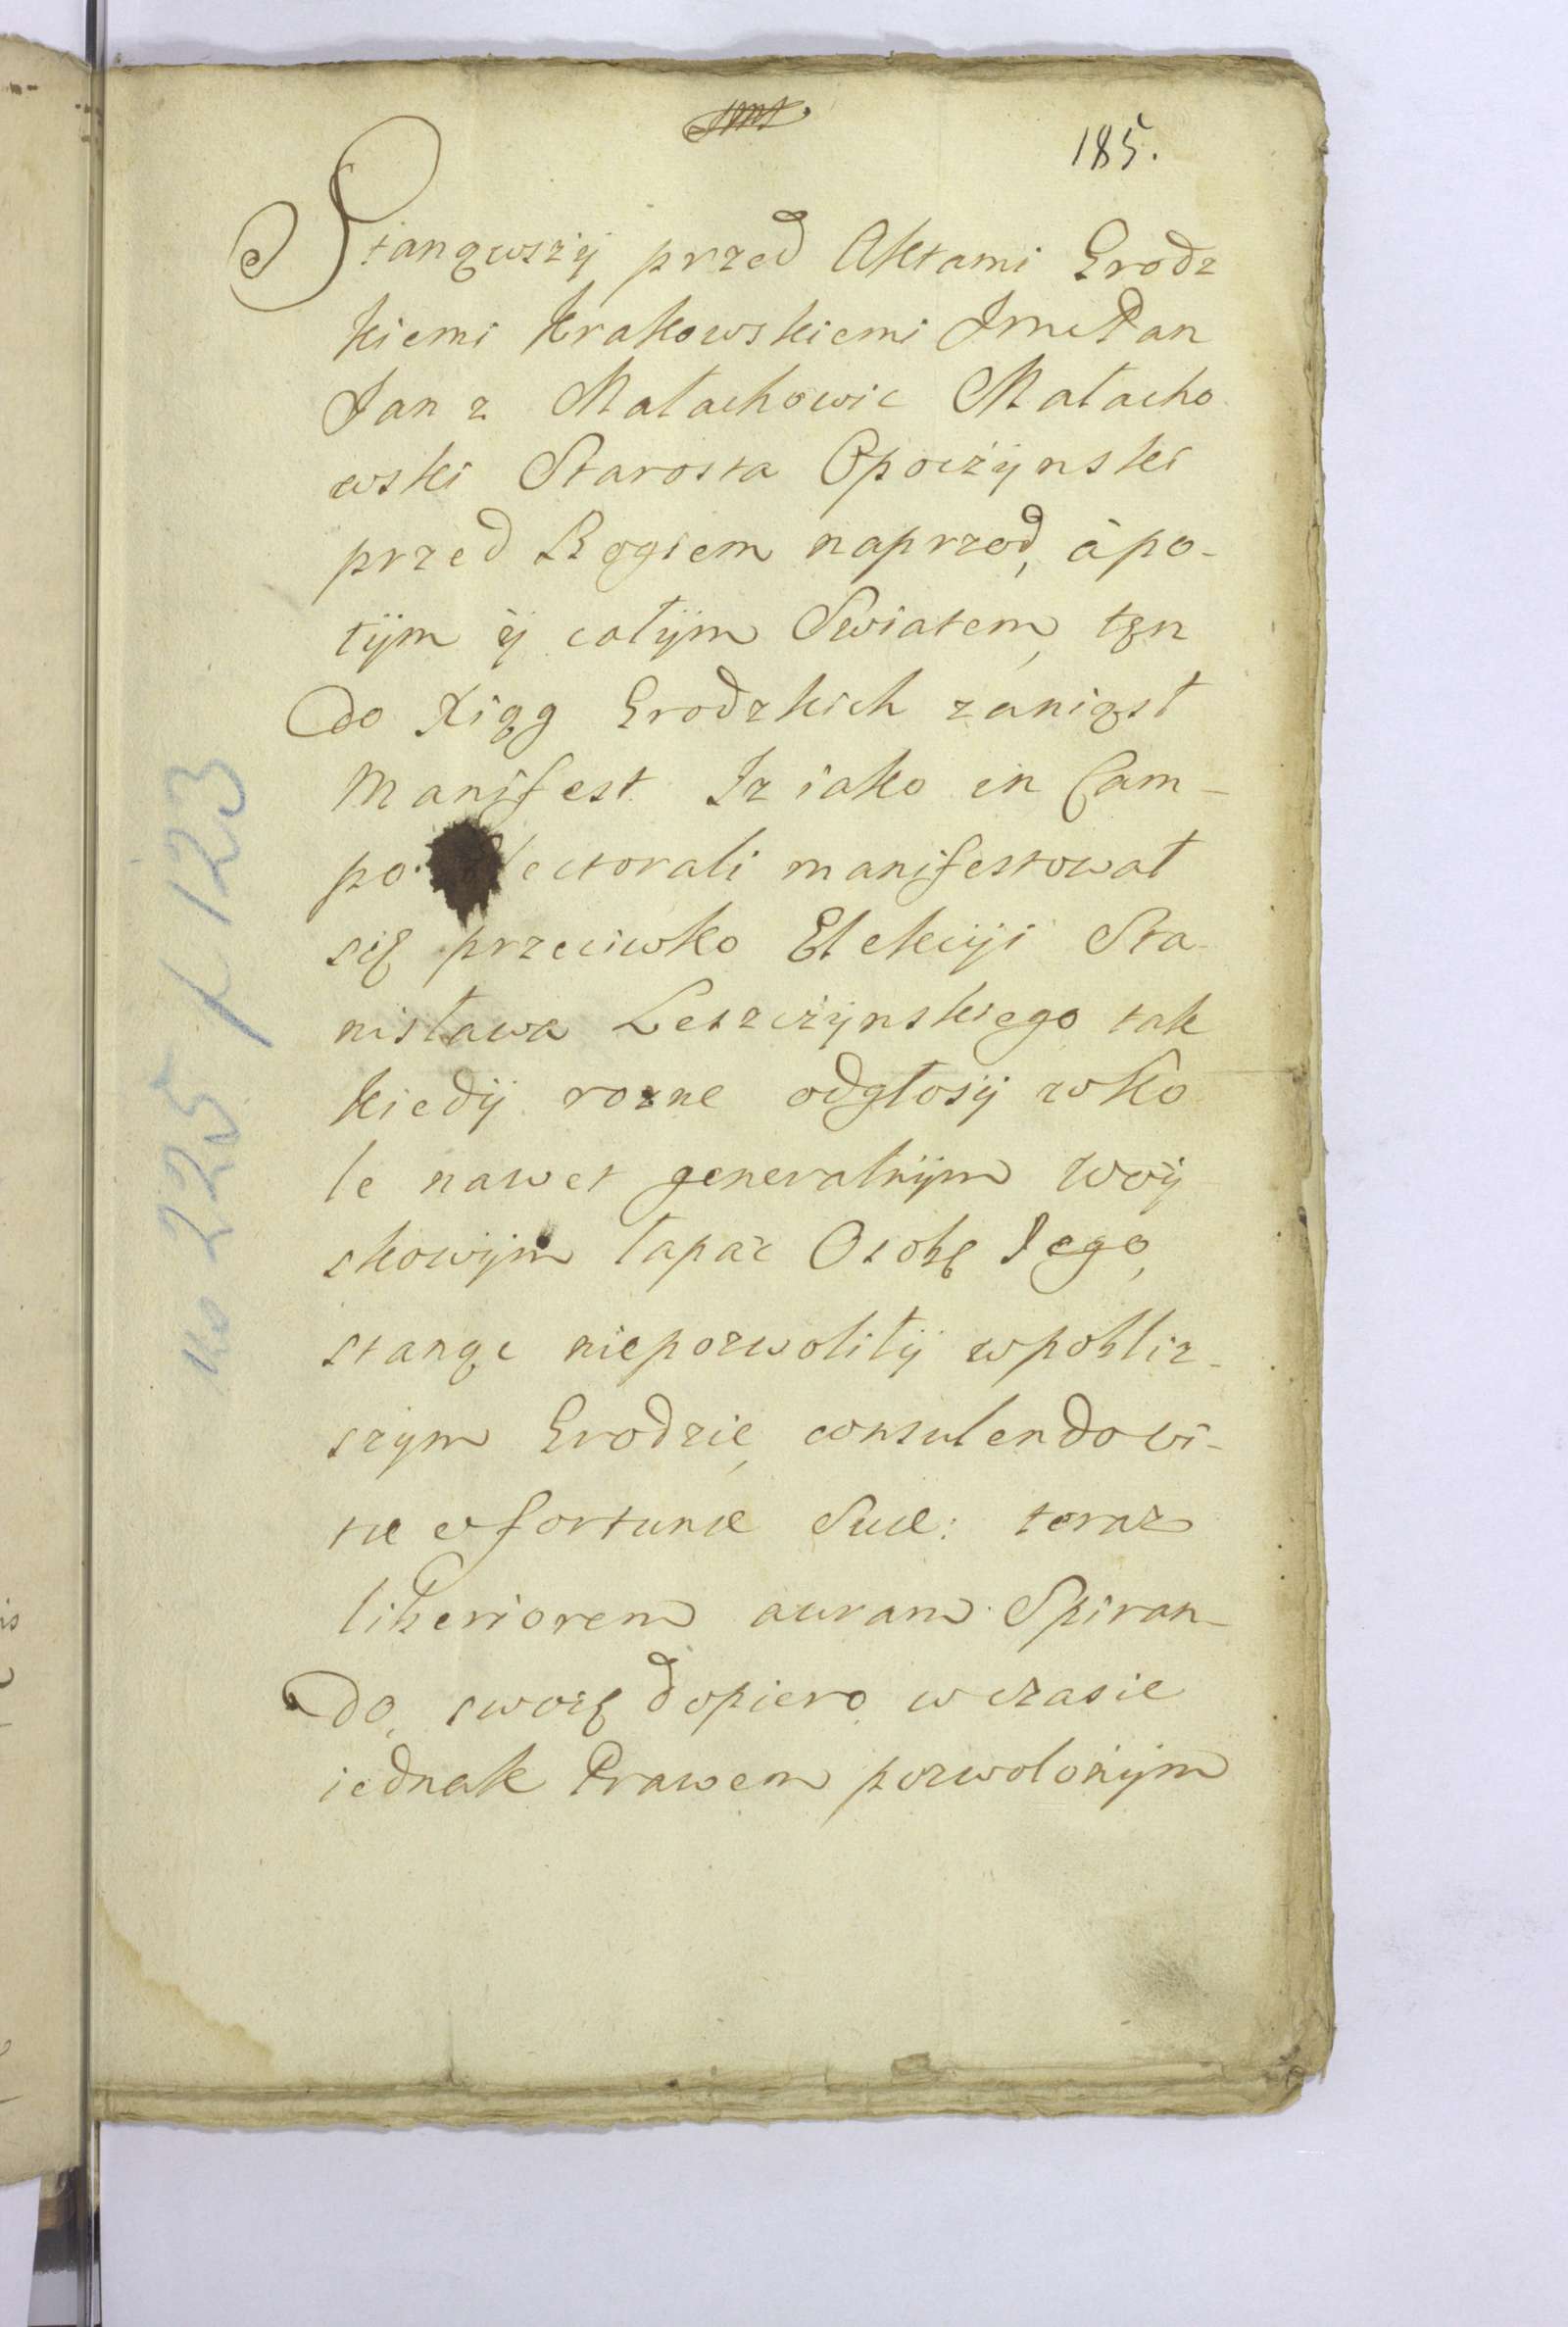 185.
Stanąwszÿ przed Aktami Grodz
kiemi Krakowskiemi Jmc Pan
Jan z Małachowic Małacho
wski Starosta Opoczÿnski
przed Bogiem naprzod, à po-
tÿm ÿ całÿm Swiatem, tęn
do Xiąg Grodzkich zaniąsł
Manifest. Iz iako in Cam-
po Electorali manifestował
się przeciwko Elekcÿi Sta
nisława Leszczÿnskiego tak
kiedÿ rozne odgłosÿ w Ko
le nawet generalnÿm Woÿ
skowÿm łapać Osobę Jego,
stanąc niepozwoliłÿ w pobliz-
szym Grodzie, consulendo vi-
tæ et fortunæ Suæ: teraz
liberiorem auram Spiran-
do, swoię dopiero w czasie
iednak Prawem pozwolonÿm
no 225 / 123